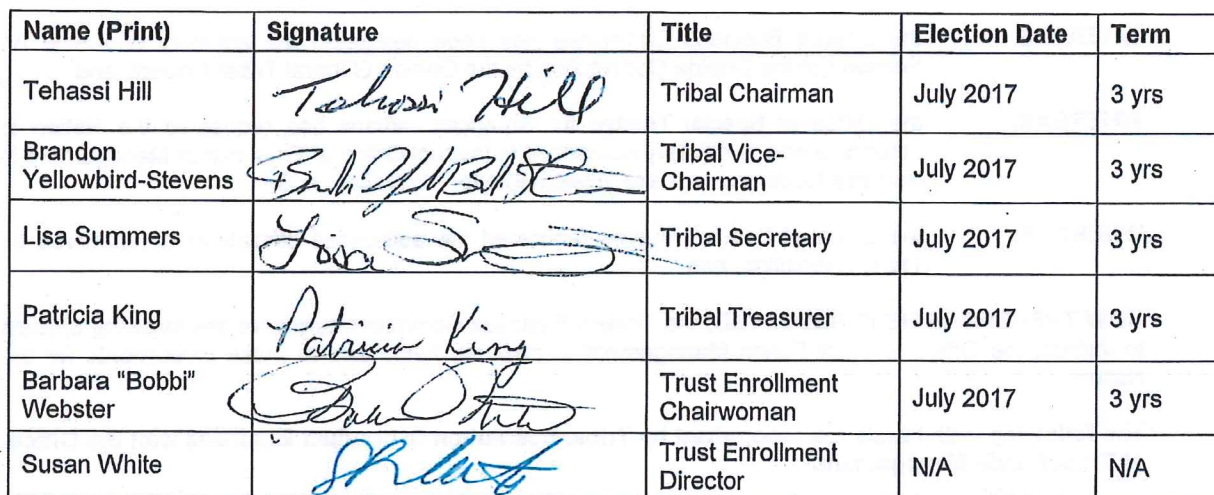 Name (Print) Signature Title Election Date Term
Tehassi Hill Tehassi Hill Tribal Chairman July 2017 3 yrs
Brandon
Yellowbird-Stevens Tribal Vice-
Chairman July 2017 3 yrs
Lisa Summers Lisa Tribal Secretary July 2017 3 yrs
Patricia King Patricia King Tribal Treasurer July 2017 3 yrs
Barbara "Bobbi"
Webster Trust Enrollment
Chairwoman July 2017 3 yrs
Susan White Trust Enrollment
Director N/A N/A